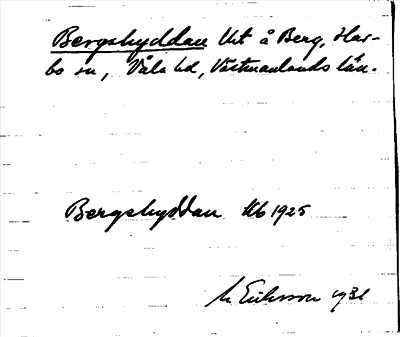 Bergshyddan lht å Berg, Har-
bo sn, Våla hd, Västmanlands län.
Bergshyddan Kb 1925
M Eriksson 1931